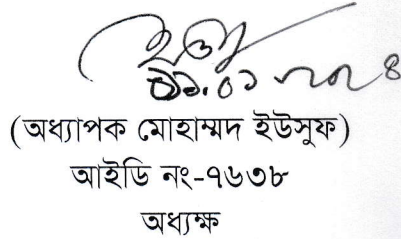 (অধ্যাপক মোহাম্মদ ইউসুফ)
আইডি নং-৭৬৩৮
অধ্যক্ষ